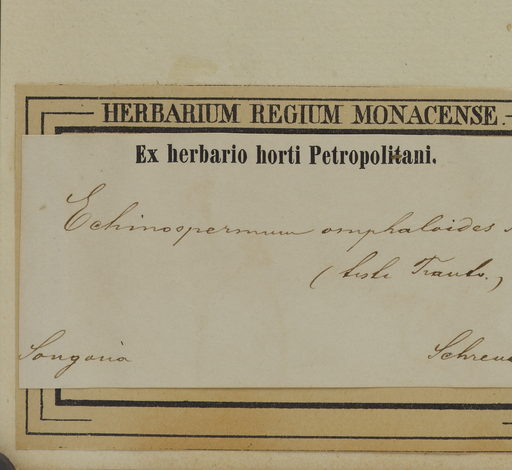 HERBARIUM REGIUM MONACENSE.
Ex herbario horti Petropolitani.
Echinospermum omphaloides
(teste Trautv.)
Songoria